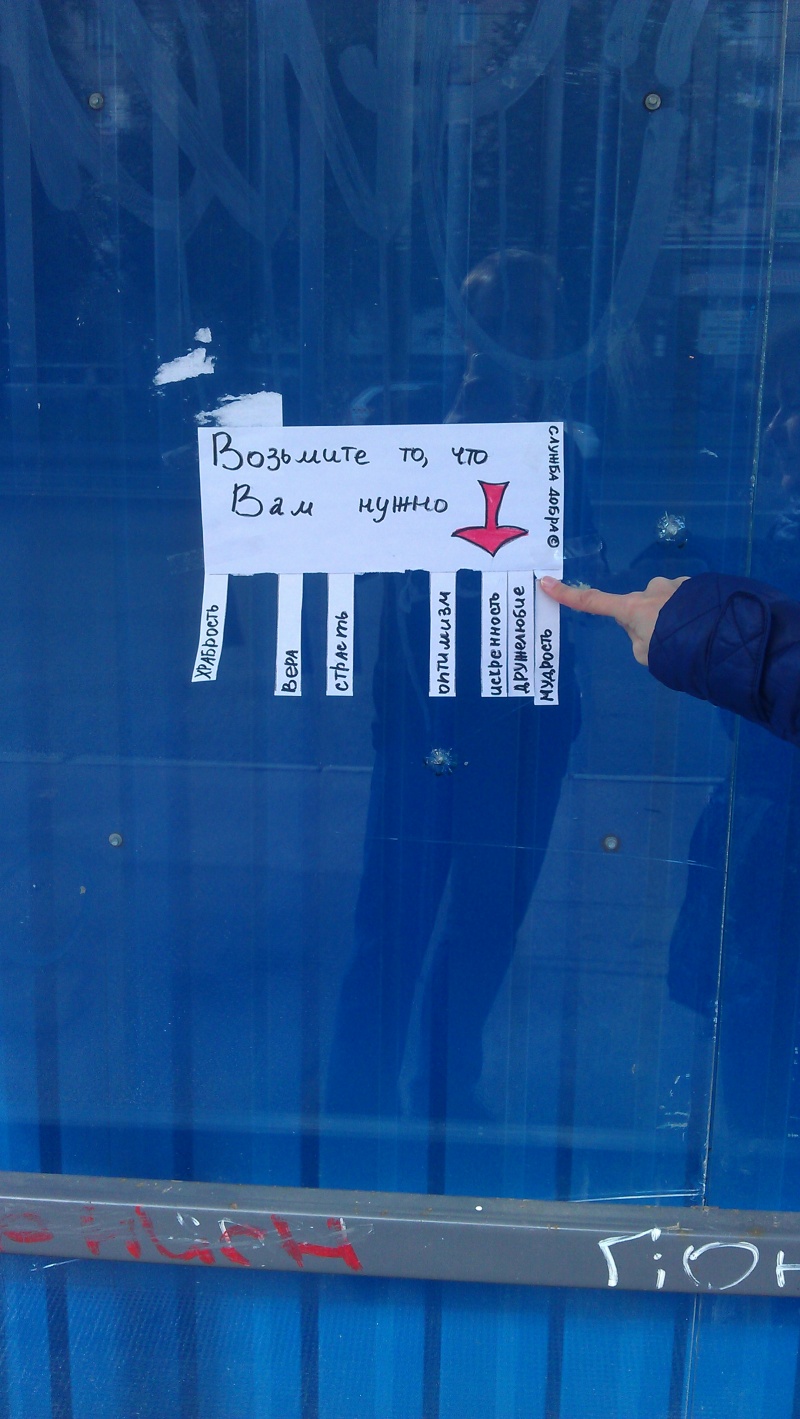 Возьмите то, что
Вам нужно
СЛУЖБА ДОБРА ©
ХРАБРОСТЬ
ВЕРА
страсть
оптимизм
искренность
дружелюбие
мудрость